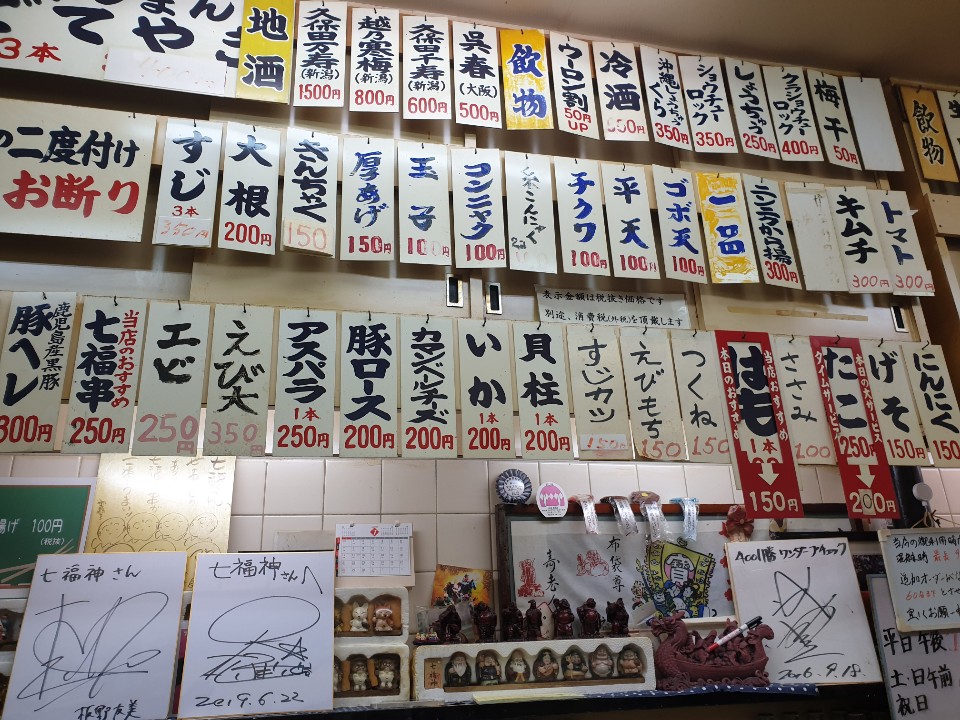 3本
地酒
久保田万寿
(新潟)
1500円
越乃寒梅
(新潟)
800円
久保田千寿
(新潟)
600円
呉春
(大阪)
500円
飲物
ウーロン割
50円
UP
冷酒
沖縄しょうちゅう
ぐら
350円
ショウチュー
ロック
350円
しょうちゅう
250円
クラショウチュー
ロック
400円
梅干
50円
飲物
の二度付け
お断り
すじ
3本
350円
大根
200円
きんちゃく
150
厚あげ
150円
玉子
100円
コンニャク
100円
チクワ
100円
平天
100円
ゴボ天
100円
一品
ニンニクから揚
300円
キムチ
300円
トマト
300円
表示金額は税抜き価格です
別途、消費税(外税)を頂戴します
鹿児島産黒豚
豚ヘレ
300円
当店のおすすめ
七福串
250円
エビ
250円
えび大
350円
アスパラ
1本
250円
豚ロース
200円
カマンベールチーズ
200円
いか
1本
200円
貝柱
1本
200円
すじカツ
150円
えびもち
150
つくね
150
当店のおすすめ
はも
本日のおすすめ
1本
150円
ささみ
100
本日の大サービス
たこ
タイムサービス
250円
200円
げそ
150円
にんにく
150円
揚げ 100円
(税抜)
七福神さん
七福神さん
2019.6.22
寿老
布袋尊
寶
平日午後
土·日午前
祝日